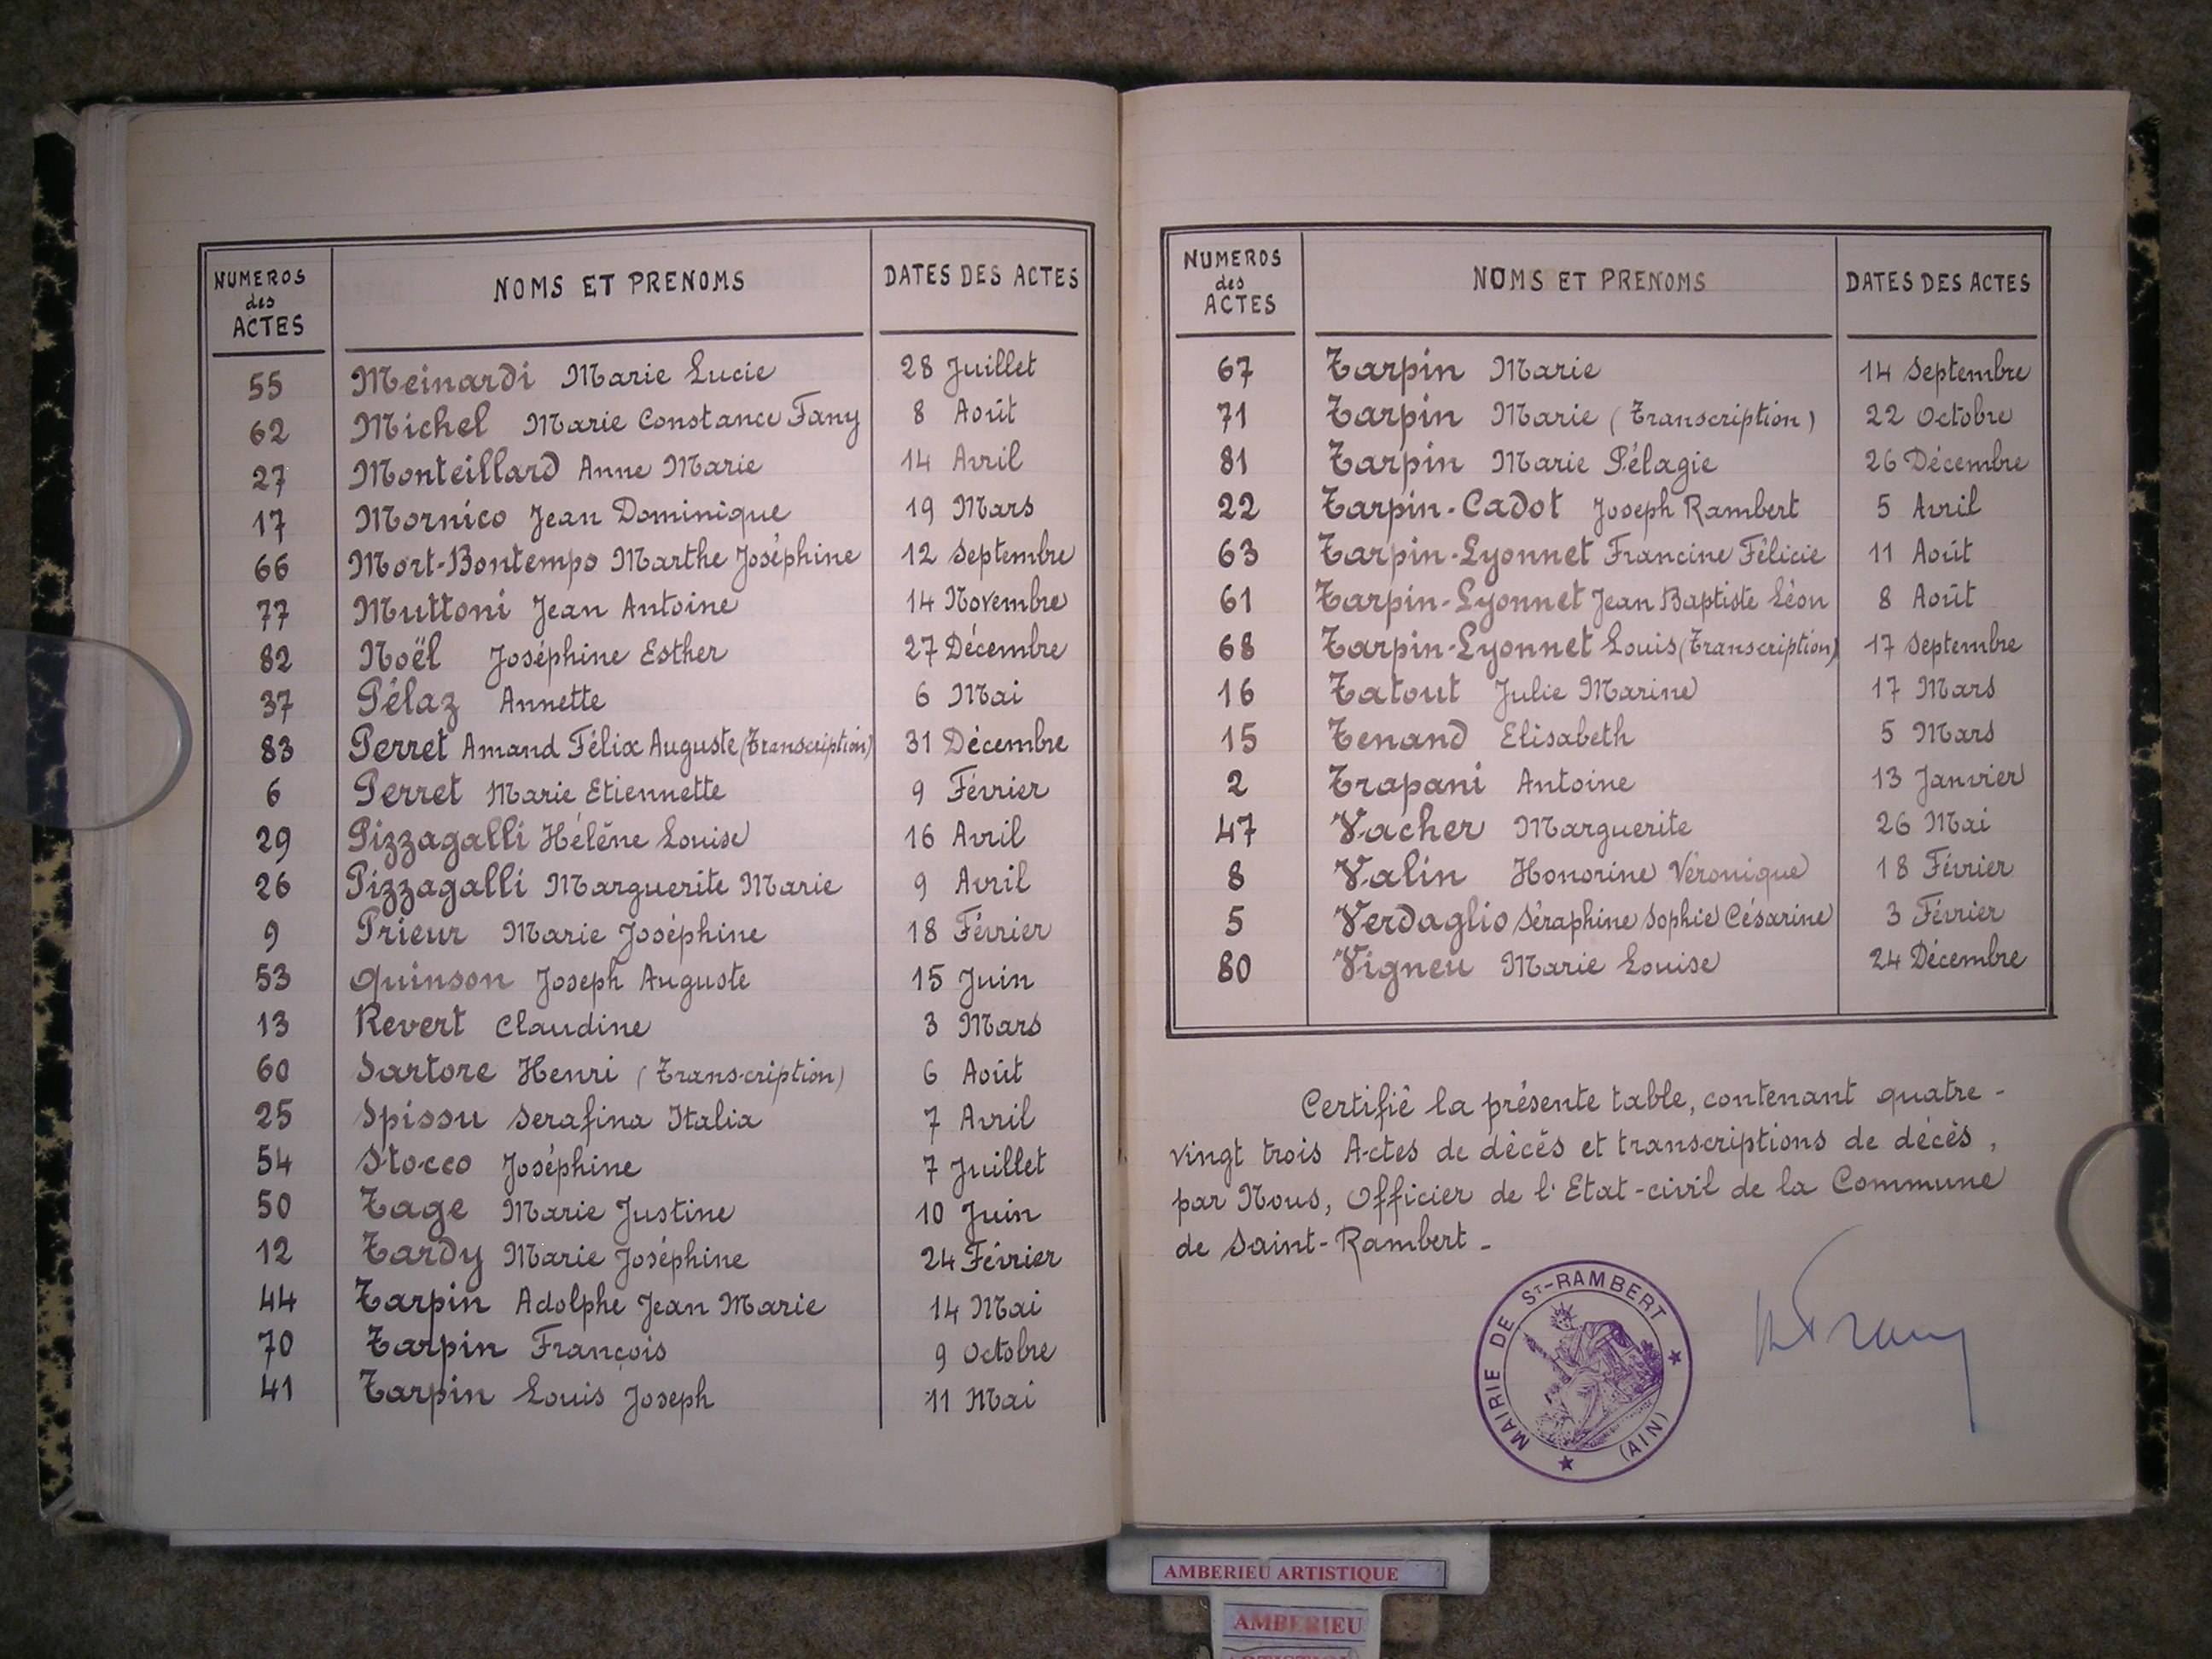 NUMEROS des ACTES NOMS ET PRENOMS DATES DES ACTES
55 Meinardi Marie Lucie 28 Juillet
62 Michel Marie Constance Fany 8 Août
27 Monteillard Anne Marie 14 Avril
17 Mornico Jean Dominique 19 Mars
66 Mort-Bontemps Marthe Joséphine 12 Septembre
77 Muttoni Jean Antoine 14 Novembre
82 Noël Joséphine Esther 27 Décembre
37 Pélaz Annette 6 Mai
83 Perret Amand Félix Auguste (Transcription) 31 Décembre
6 Perret Marie Etiennette 9 Février
29 Pizzagalli Hélène Louise 16 Avril
26 Pizzagalli Marguerite Marie 9 Avril
9 Prieur Marie Joséphine 18 Février
53 Quinson Joseph Auguste 15 Juin
13 Revert Claudine 3 Mars
60 Sartore Henri (Transcription) 6 Août
25 Spissu Serafina Italia 7 Avril
54 Stocco Joséphine 7 Juillet
50 Tage Marie Justine 10 Juin
12 Tardy Marie Joséphine 24 Février
44 Tarpin Adolphe Jean Marie 14 Mai
70 Tarpin François 9 Octobre
41 Tarpin Louis Joseph 11 Mai
NUMEROS des ACTES NOMS ET PRENOMS DATES DES ACTES
67 Tarpin Marie 14 Septembre
71 Tarpin Marie (Transcription) 22 Octobre
81 Tarpin Marie Pélagie 26 Décembre
22 Tarpin-Cadot Joseph Rambert 5 Avril
63 Tarpin-Lyonnet Francine Félicie 11 Août
61 Tarpin-Lyonnet Jean Baptiste Léon 8 Août
68 Tarpin-Lyonnet Louis (Transcription) 17 Septembre
16 Tatout Julie Marine 17 Mars
15 Tenand Elisabeth 5 Mars
2 Trapani Antoine 13 Janvier
47 Vacher Marguerite 26 Mai
8 Valin Honorine Véronique 18 Février
5 Verdaglio Séraphine Sophie Césarine 3 Février
80 Vigneu Marie Louise 24 Décembre
Certifié la présente table, contenant quatre-
vingt trois Actes de décès et transcriptions de décès,
par Nous, Officier de l'Etat-civil de la Commune
de Saint-Rambert -
MAIRIE DE ST-RAMBERT
(AIN)
AMBERIEU ARTISTIQUE
AMBERIEU
ARTISTIQUE